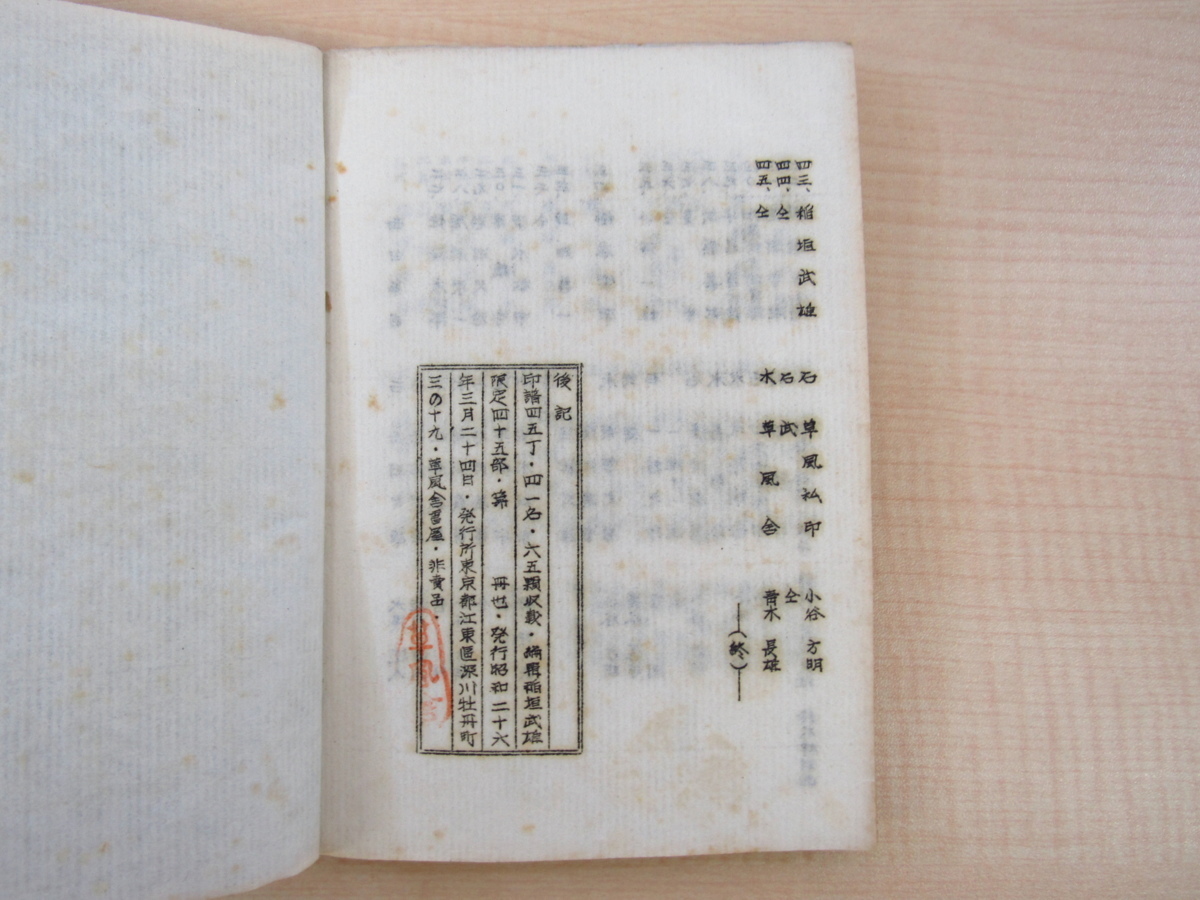 四三、稲垣武雄 石 草風私印 小谷方明
四四、仝 石 武 仝
四五、仝 木 草風舎 青木長雄
―(終)―
後記
印譜四五丁・四一名・六五顆収載・編者稲垣武雄
限定四十五部・第 冊也・発行昭和二十六
年三月二十四日・発行所東京都江東區深川牡丹町
三の十九・草風舎書屋・非賣品・
草風舎